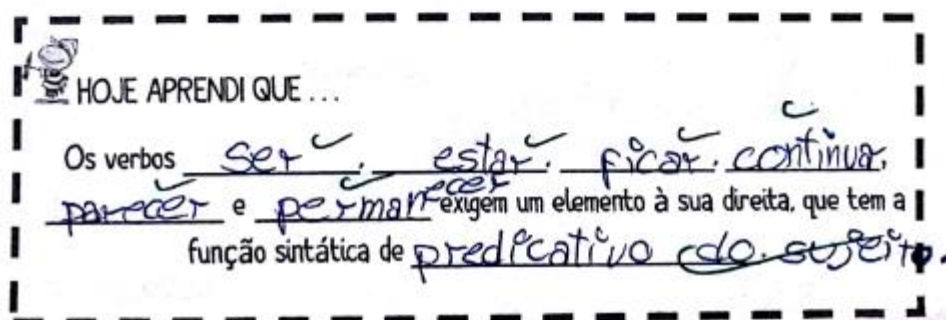 HOJE APRENDI QUE ...
Os verbos ser, estar, ficar, continuar,
parecer e permanecer exigem um elemento à sua direita, que tem a
função sintática de predicativo do sujeito.